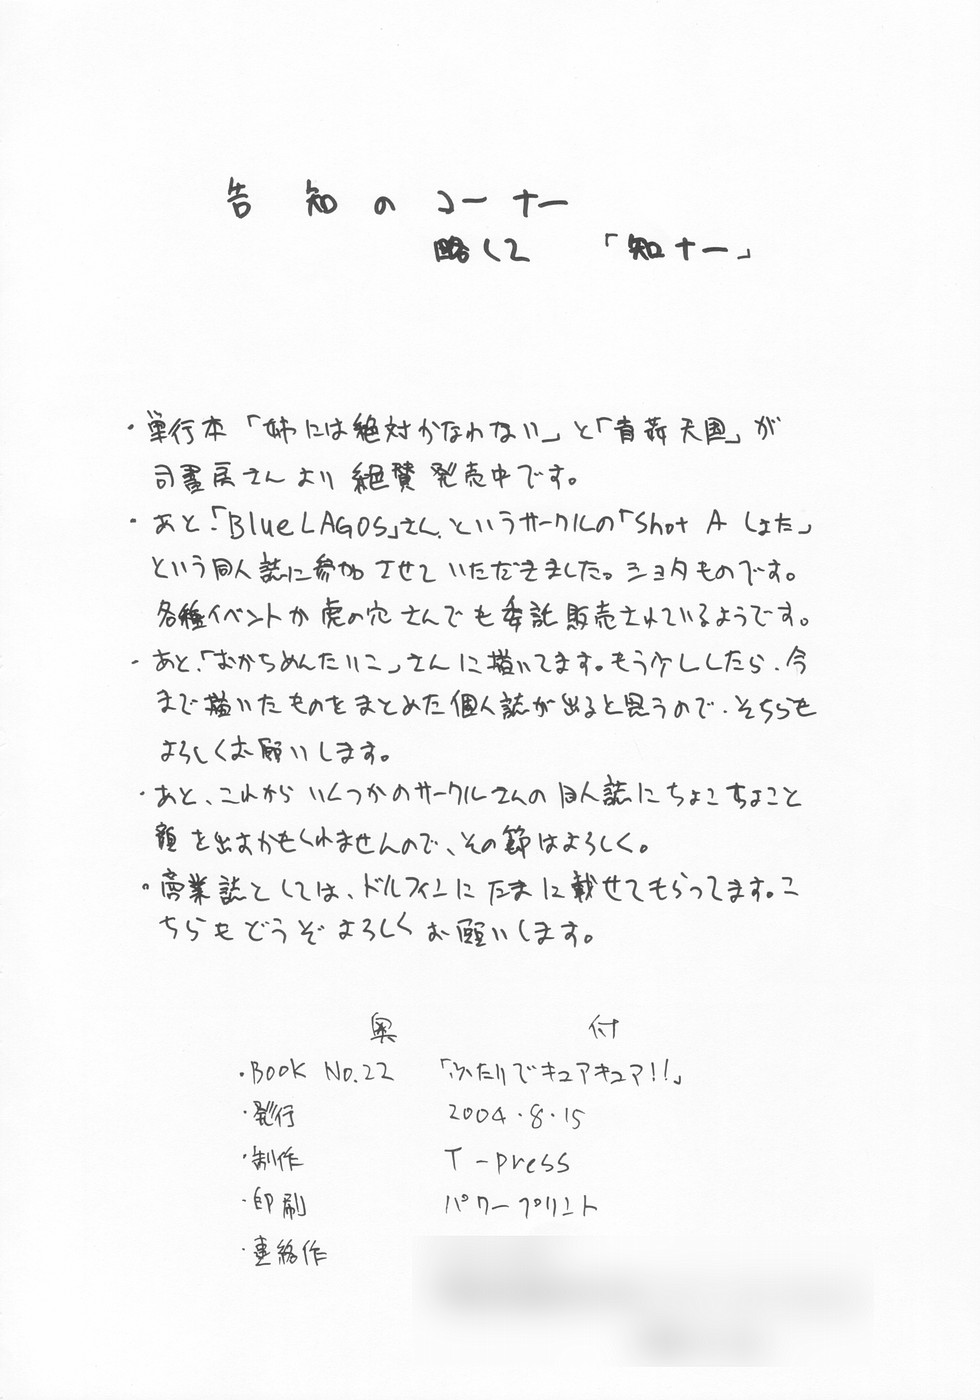 告知のコーナー
略して 「知ナー」
・単行本「姉には絶対かなわない」と「盲姦天国」が
司書房さんより絶賛発売中です。
・あと、「Blue LAGOS」さん、というサークルの「Shot A しょた」
という同人誌に参加させていただきました。ショタものです。
各種イベントか虎の穴さんでも委託販売されているようです。
・あと、「おかちめんたいこ」さんに描いてます。もう少ししたら、今
まで描いたものをまとめた個人誌が出ると思うので、そちらも
よろしくお願いします。
・あと、これからいくつかのサークルさんの同人誌にちょこちょこと
顔を出すかもしれませんので、その節はよろしく。
・商業誌としては、ドルフィンにたまに載せてもらってます。こ
ちらもどうぞよろしくお願いします。
奥付
・BOOK No.22 「ふたりでキュアキュア!!」
・発行 2004・8・15
・制作 T-press
・印刷 パワープリント
・連絡作